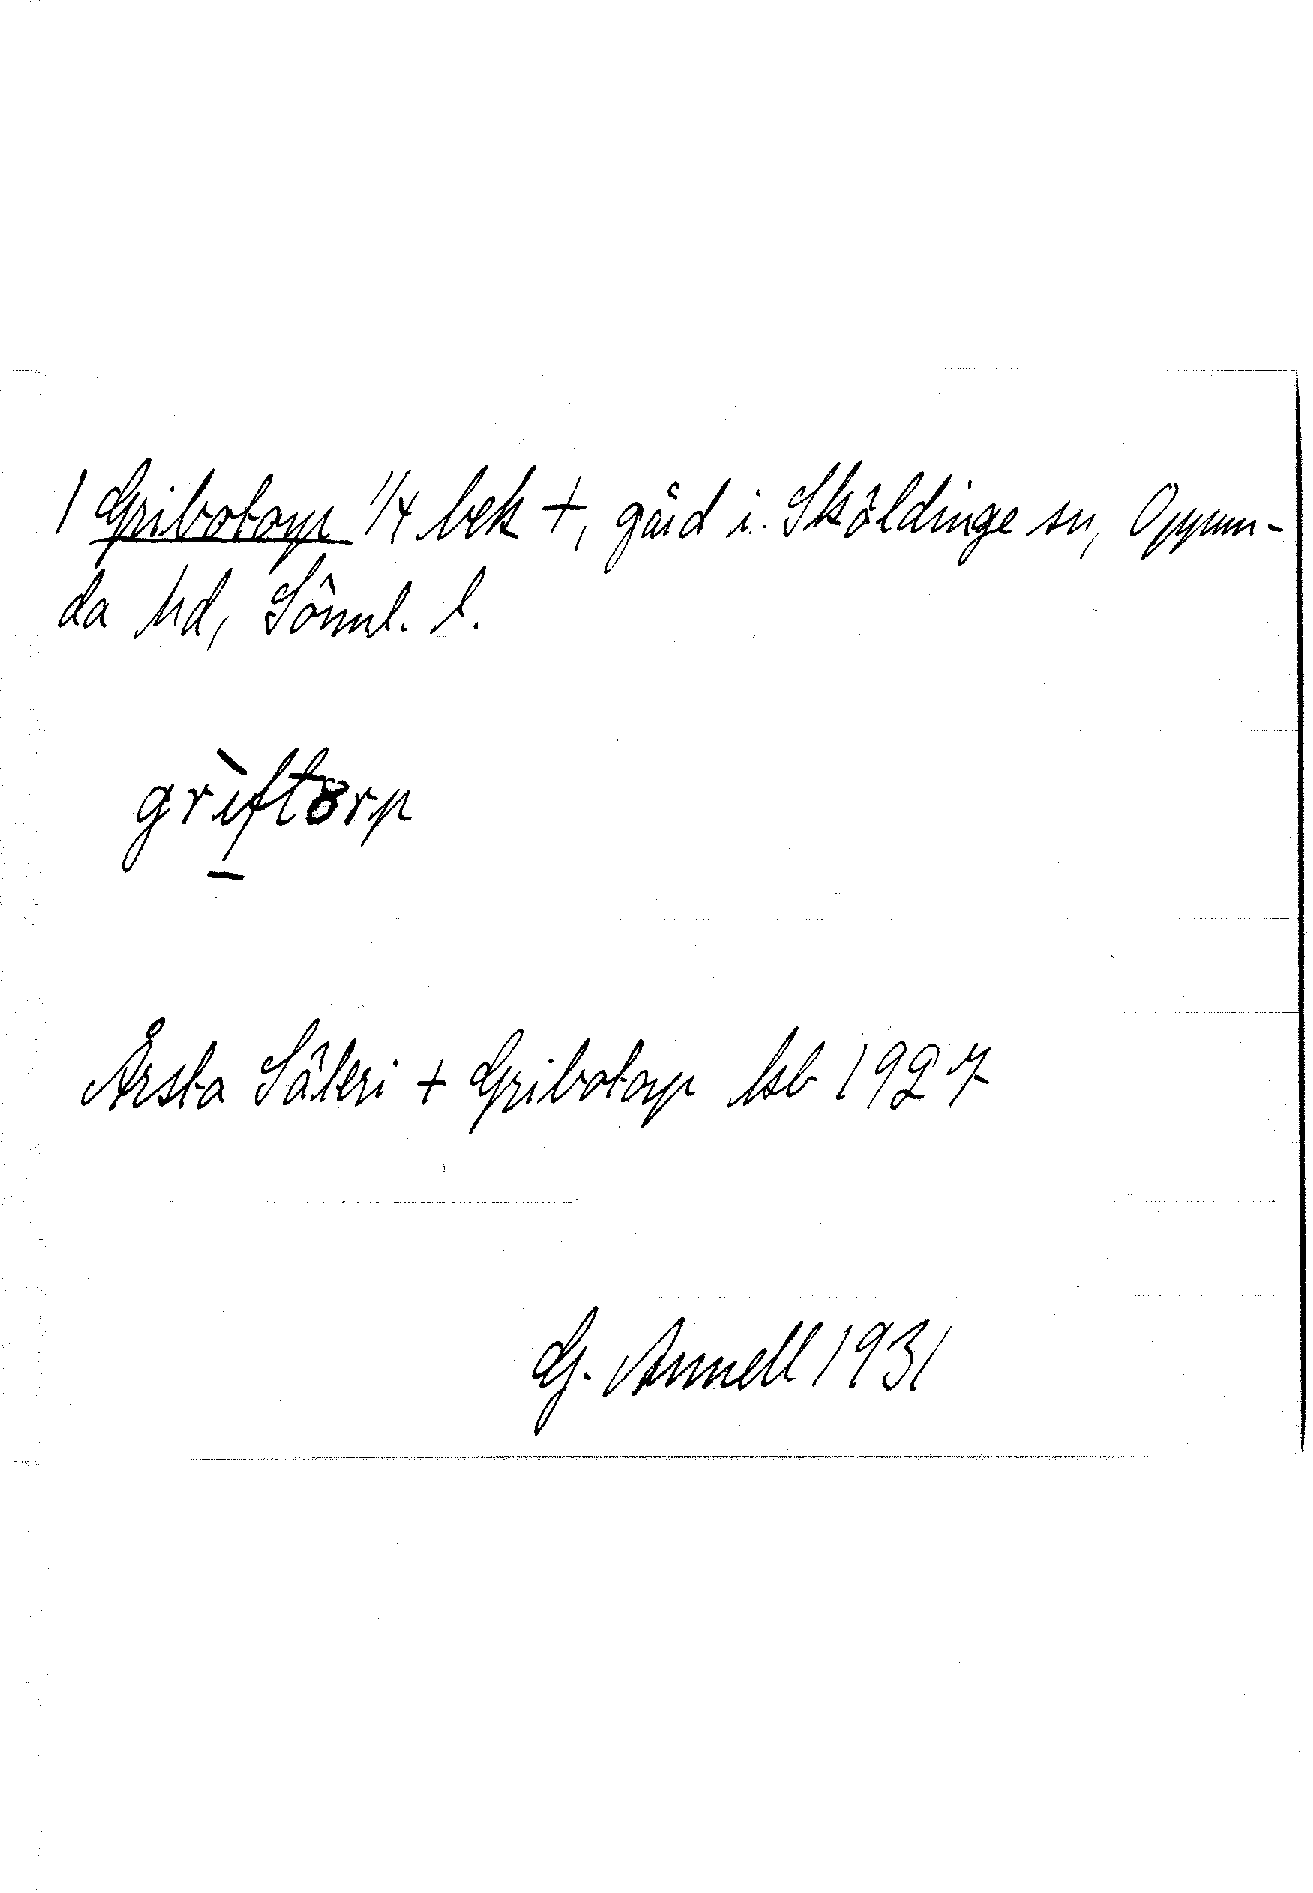 1 Gribotorp 1/4 bek +, gård i. Sköldinge sn, Oppun-
da hd, Söml. l.
grìftorp
Årsta Säteri + Gribotorp lsb 1927
G. Annell 1931